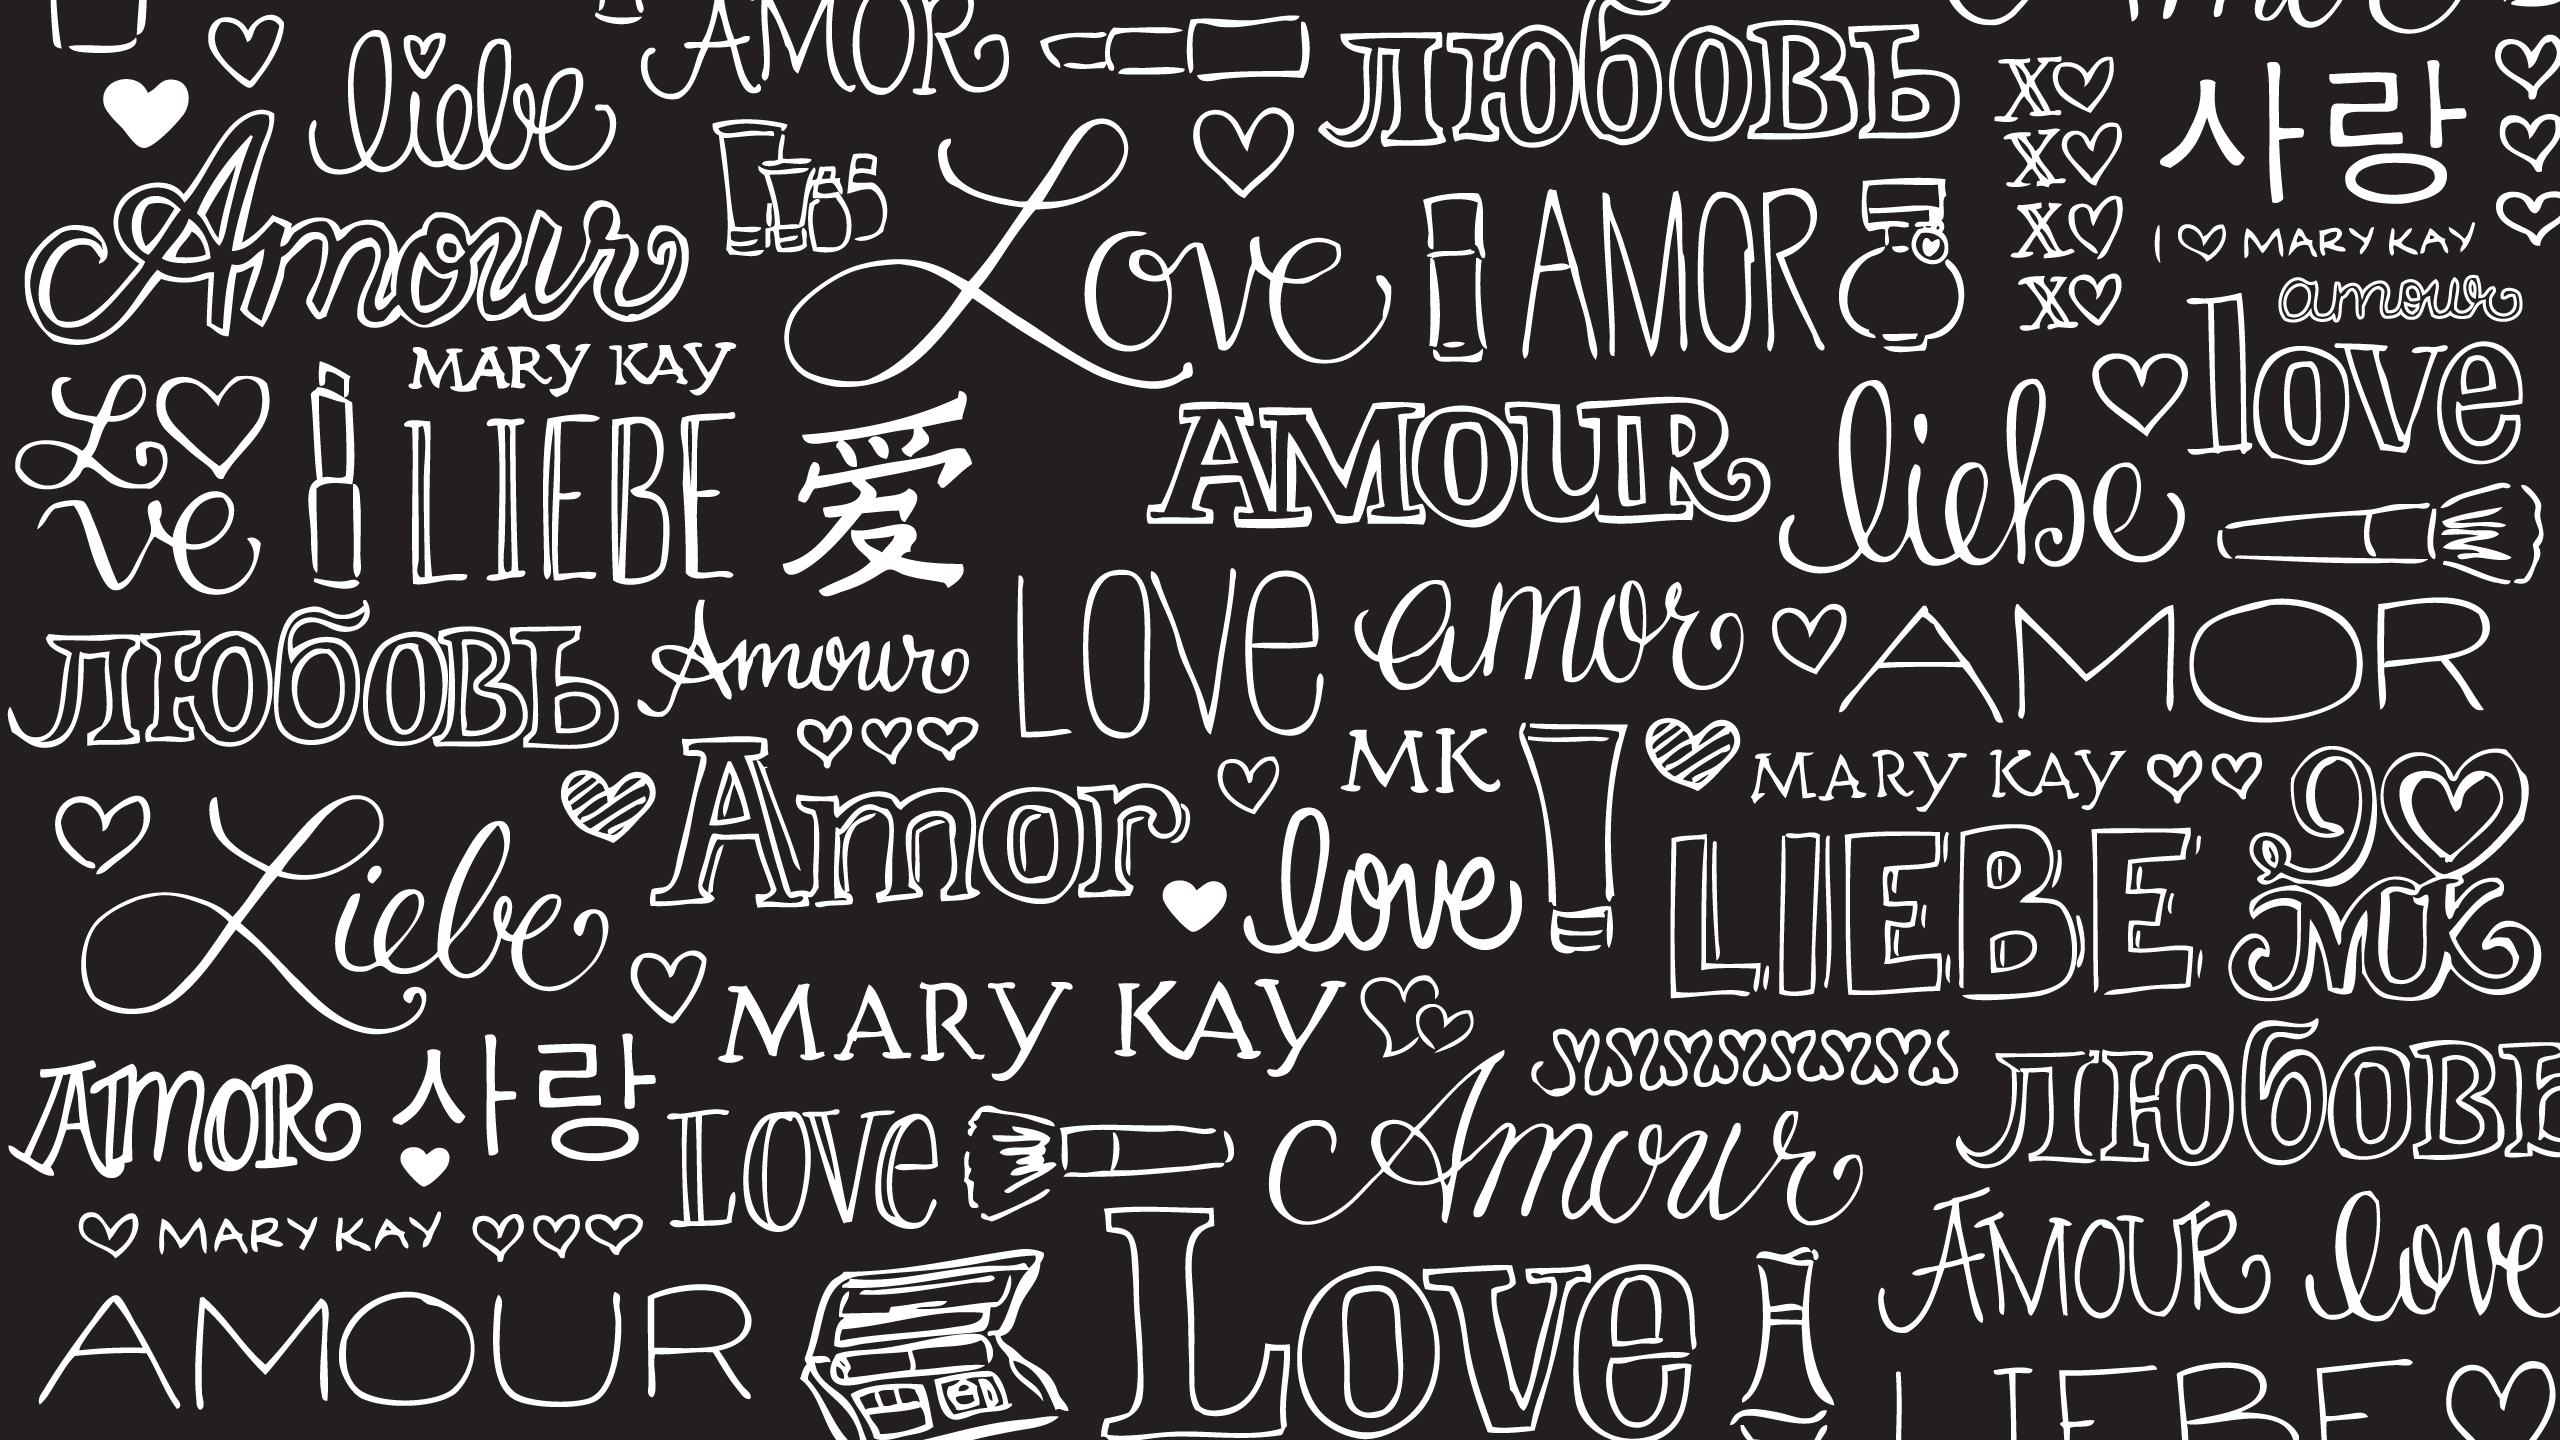 AMOR
liebe
любовь
X
X
X
X
사랑
I MARY KAY
Amour
Love
AMOR
amour
love
MARY KAY
L
ve
LIEBE
爱
AMOUR
liebe
любовь
Amour
LOVE
amor
AMOR
MK
MARY KAY
Amor
Liebe
love
LIEBE
MK
MARY KAY
AMOR
사랑
LOVE
Amour
любовь
MARY KAY
AMOUR
love
AMOUR
Love
LIEBE